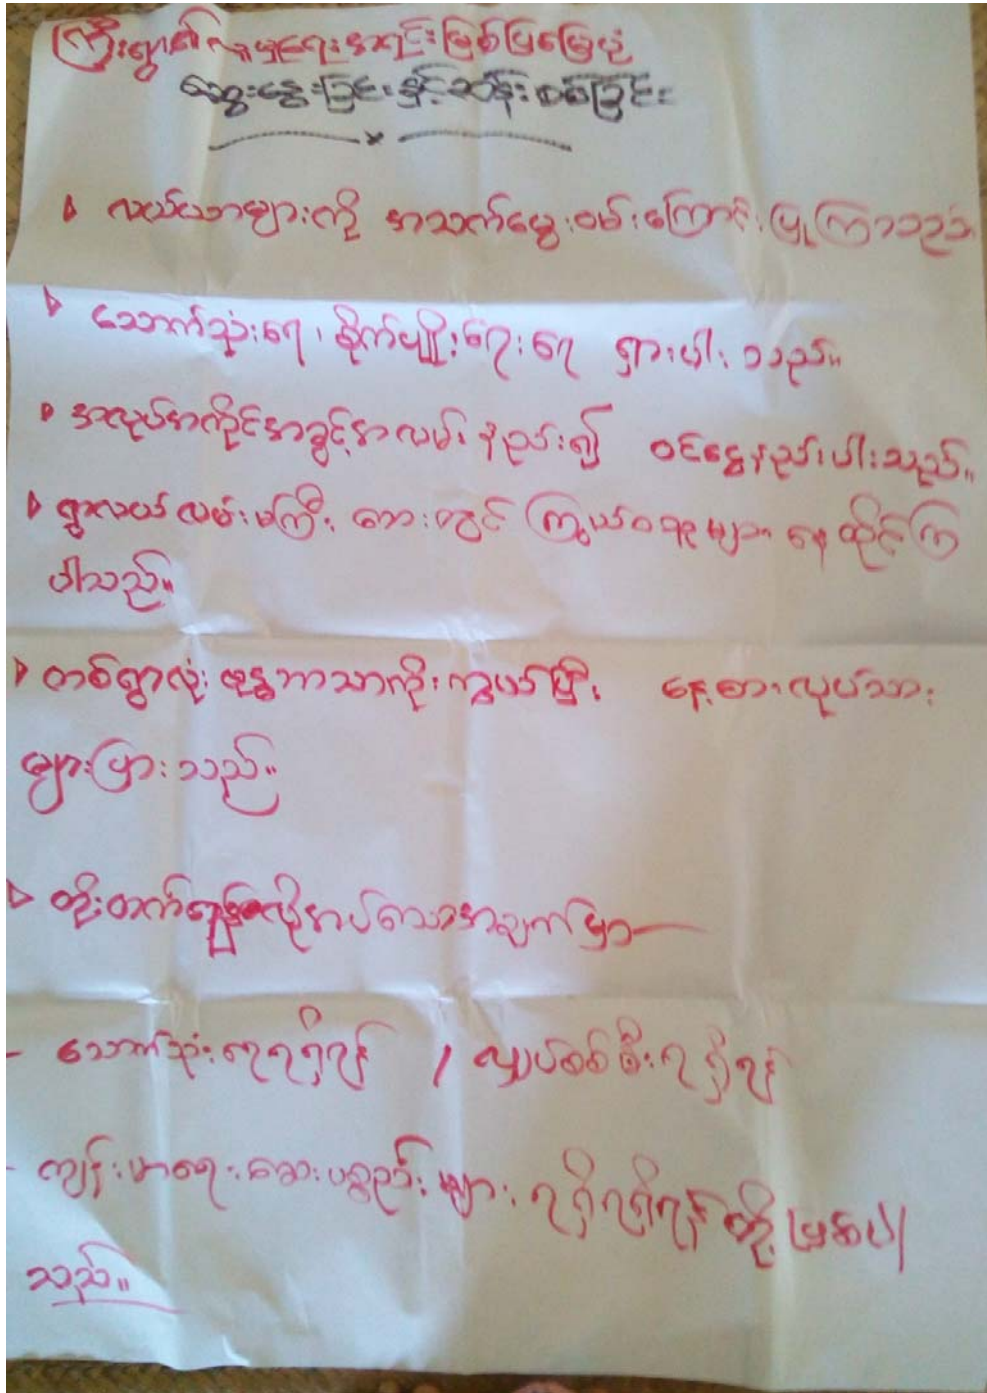 ကြီးရွာ၏လူမှုရေးအရင်းမြစ်ပြမြေပုံ
ဆွေးနွေးခြင်းနှင့်ဆန်းစစ်ခြင်း
လယ်ယာများကို အသက်မွေးဝမ်းကြောင်းပြုကြသည်။
သောက်သုံးရေ၊ စိုက်ပျိုးရေးရေ ရှားပါးသည်။
အလုပ်အကိုင်အခွင့်အလမ်းနည်း၍ ဝင်ငွေနည်းပါးသည်။
ရွာလယ်လမ်းမကြီး ဘေးတွင် ကြွယ်ဝသူများ နေထိုင်ကြ
ပါသည်။
တစ်ရွာလုံး ဗုဒ္ဓဘာသာကိုးကွယ်ပြီး နေ့စားလုပ်သား
များပြားသည်။
တိုးတက်ရန်လိုအပ်သောအချက်မှာ—
- သောက်သုံးရေရရှိရန် / လျှပ်စစ်မီးရရှိရန်
- ကျန်းမာရေးဆေးပစ္စည်းများ ရရှိရရှိရန်တို့ဖြစ်ပါ
သည်။